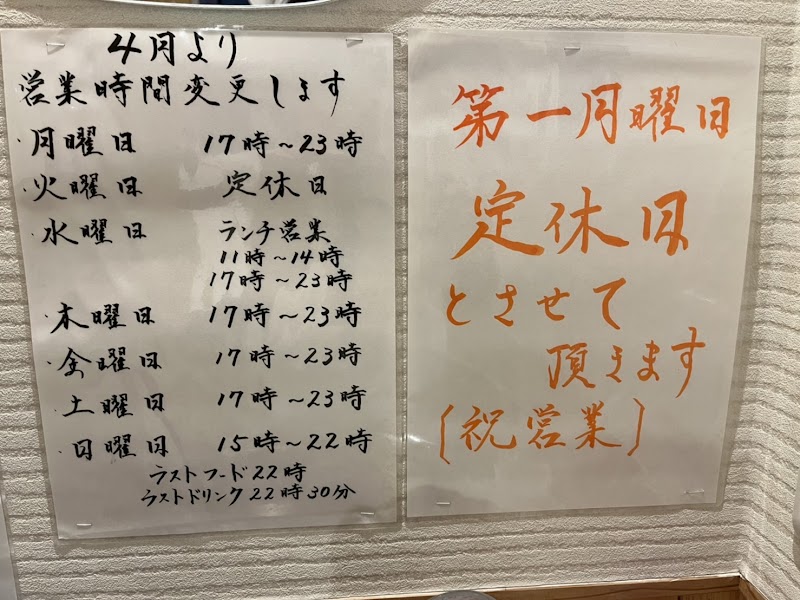 4月より
営業時間変更します
・月曜日 17時~23時
・火曜日 定休日
・水曜日 ランチ営業
11時~14時
17時~23時
・木曜日 17時~23時
・金曜日 17時~23時
・土曜日 17時~23時
・日曜日 15時~22時
ラストフード22時
ラストドリンク22時30分
第一月曜日
定休日
とさせて
頂きます
(祝営業)